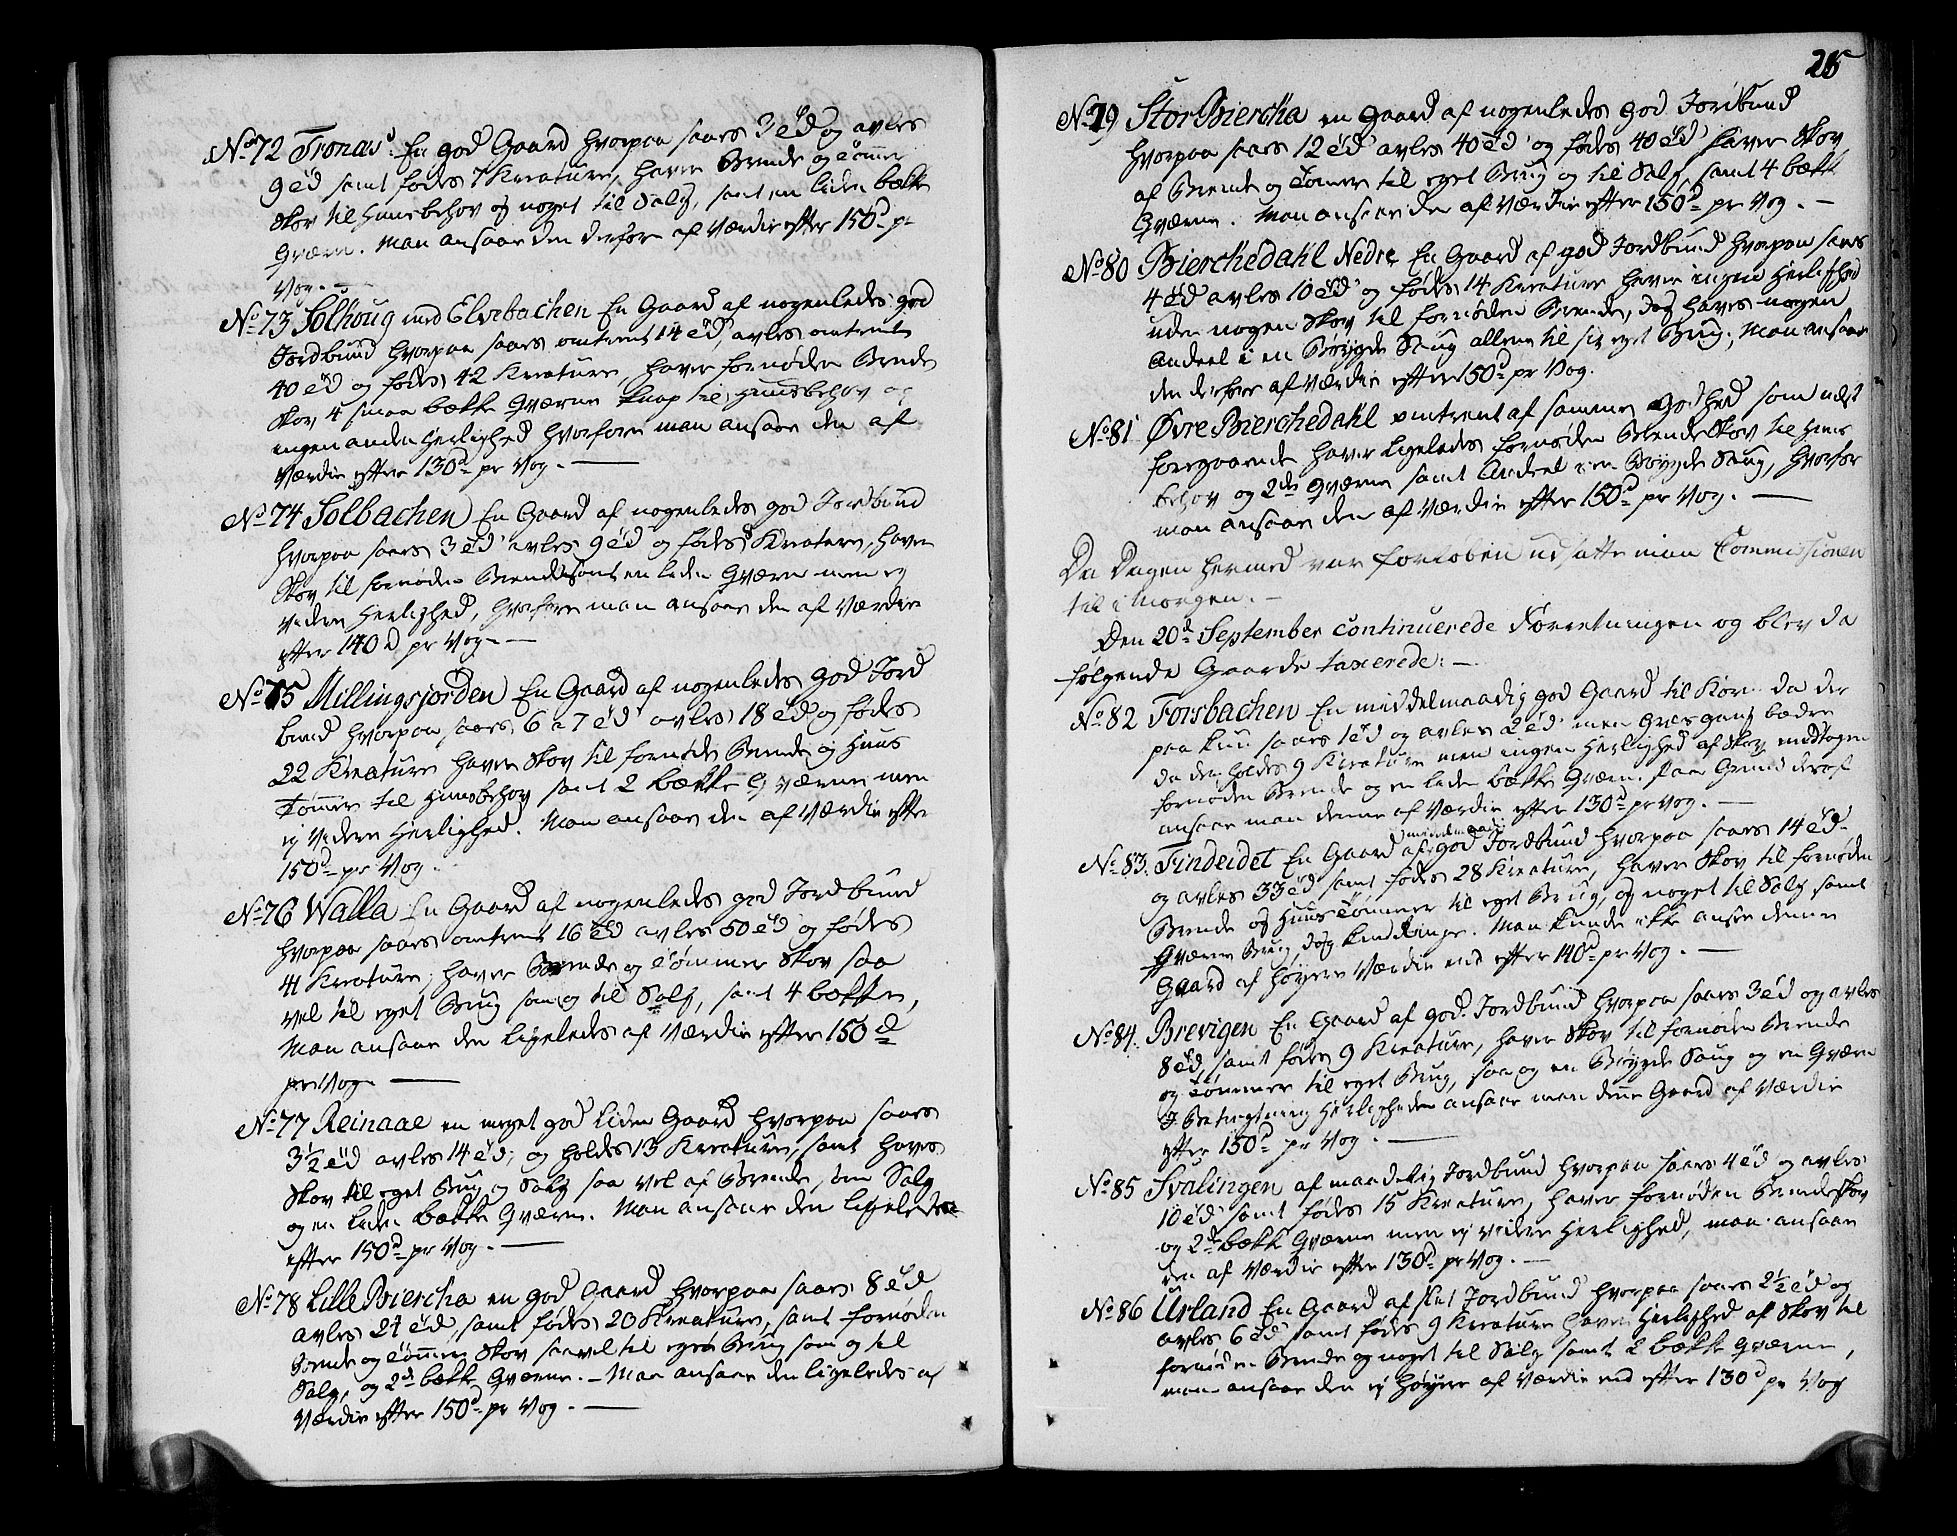 No 72 Tronæs En god Gaard hvorpaa saaes 3 Td og avles
9 Td samt fødes 7 Kreature, haver Brende og Tømmer
Skov til Huusbehov og noget til Salg, samt en liden bække
Qværn. Man ansaae den derfore af Værdie efter 150d pr
Vog. —
No 73 Solhoug med Elvebachen En Gaard af nogenledes god
Jordbund hvorpaa saaes omtrent 14 Td, avles omtrent
40 Td og fødes 42 Kreature, haver fornøden Brende
Skov 4 smaa bække Qværne knap til Huusbehov og
ingen anden Herlighed hvorfore man ansaae den af
Værdie efter 130d pr Vog. —
No 74 Solbachen En Gaard af nogenledes god Jordbund
hvorpaa saaes 3 Td avles 9 Td og fødes Kreature, haver
Skov til fornøden Brende samt en liden Qværn men ej
videre Herlighed, hvorfore man ansaae den af Værdie
efter 140d pr Vog. —
No 75 Millingsjorden En Gaard af nogenledes god Jord
bund hvorpaa saaes 6 a 7 Td avles 18 Td og fødes
22 Kreature haver Skov til fornøden Brende og Huus
Tømmer til Huusbehov samt 2 bække Qværne men
ej videre Herlighed. Man ansaae den af Værdie efter
150d pr Vog.
No 76 Walla En Gaard af nogenledes god Jordbund
hvorpaa saaes omtrent 16 Td avles 50 Td og fødes
41 Kreature, haver Brende og Tømmer Skov saa
vel til eget Brug som og til Salg, samt 4 bække,
Man ansaae den ligeledes af Værdie efter 150d
pr Vog —
No 77 Reinaae en meget god liden Gaard hvorpaa saaes
3½ Td avles 14 Td, og holdes 13 Kreature, samt haves
Skov til eget Brug og Salg saa vel af Brende, som Salg
og en liden bække Qværn. Man ansaae den ligeledes
efter 150d pr Vog. —
No 78 Lille Biercha en god Gaard hvorpaa saaes 8 Td
avles 24 Td, samt fødes 20 Kreature, samt fornøden
Brende og Tømmer Skov saavel til eget Brug som og til
Salg, og 2de bække Qværne. — Man ansaae den ligeledes af
Værdie efter 150d pr Vog. —
25
No 79 Stor Biercha en Gaard af nogenledes god Jordbund
hvorpaa saaes 12 Td avles 40 Td og fødes 40 Td haver Skov
af Brende og Tømmer til eget Brug og til Salg, samt 4 bæk
Qværne. Man ansaae den af Værdie efter 150d pr Vog. —
No 80 Bierchedahl Nedre En Gaard af god Jordbund hvorpaa saaes
4 Td avles 10 Td og fødes 14 Kreature haver ingen Herlighed
uden nogen Skov til fornøden Brende, dog haves nogen
Andeel i en Bøygde Saug allene til sit eget Brug; Man ansaae
den derfore af Værdie efter 150d pr Vog.
No 81 Øvre Bierchedahl omtrent af samme Godhed som næst
foregaaende haver ligeledes fornøden Brende Skov til Huus
behov og 2de Qværne samt Andeel i en Bøygde Saug, hvorfor
man ansaae den af Værdie efter 150d pr Vog. —
Da Dagen hermed var forløben udsatte man Commissionen
til i Morgen. —
Den 20d September continuerede Forretningen og blev da
følgende Gaarde taxerede: —
No 82 Forsbachen En middelmaadig god Gaard til Korn da der
paa kun saaes 1 Td og avles 2 Td men Græsgang bedre
da der holdes 9 Kreature men ingen Herlighed af Skov undtagen
fornøden Brende og en liden bække Qværn. Paa Grund deraf
ansaae man denne af Værdie efter 130d pr Vog. —
No 83. Findeidet En Gaard af middelmaadig god Jordbund hvorpaa saaes 14 Td
og avles 33 Td samt fødes 28 Kreature, haver Skov til fornøden
Brende og Huus Tømmer til eget Brug, og noget til Salg samt
Qværne Brug, dog kun Ringe. Man kunde ikke ansee denne
Gaard af høyere Værdie end efter 140d pr Vog. —
No 84. Brevigen En Gaard af god Jordbund hvorpaa saaes 3 Td og avles
8 Td, samt fødes 9 Kreature, haver Skov til fornøden Brende
og Tømmer til eget Brug, saa og en Bøygde Saug og en Qværn
I Betragtning Herligheden ansaae man denne Gaard af Værdie
efter 150d pr Vog. —
No 85 Svalingen af maadelig Jordbund hvorpaa saaes 4 Td og avles
10 Td samt fødes 15 Kreature, haver fornøden Brendeskov
og 2de bække Qværne men ej videre Herlighed, man ansaae
den af Værdie efter 130d pr Vog. —
No 86 Urland En Gaard af slet Jordbund hvorpaa saaes 2½ Td og
avles 6 Td samt fødes 9 Kreature haver Herlighed af Skov til
fornøden Brende og noget til Salg samt 2 bække Qværne,
man ansaae den ej høyere af Værdie end efter 130d pr Vog